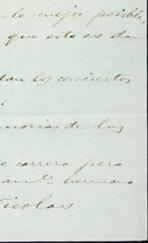 lo mejor posible,
que esto es dan
dan los conciertos
morias de los
e carrera pero
hermano
icolas